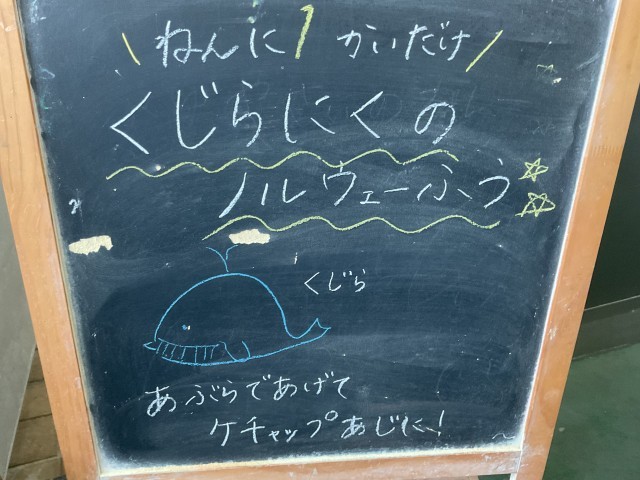 \ ねんに1かいだけ /
くじらにくの
ノルウェーふう☆☆
くじら
あぶらであげて
ケチャップあじに!